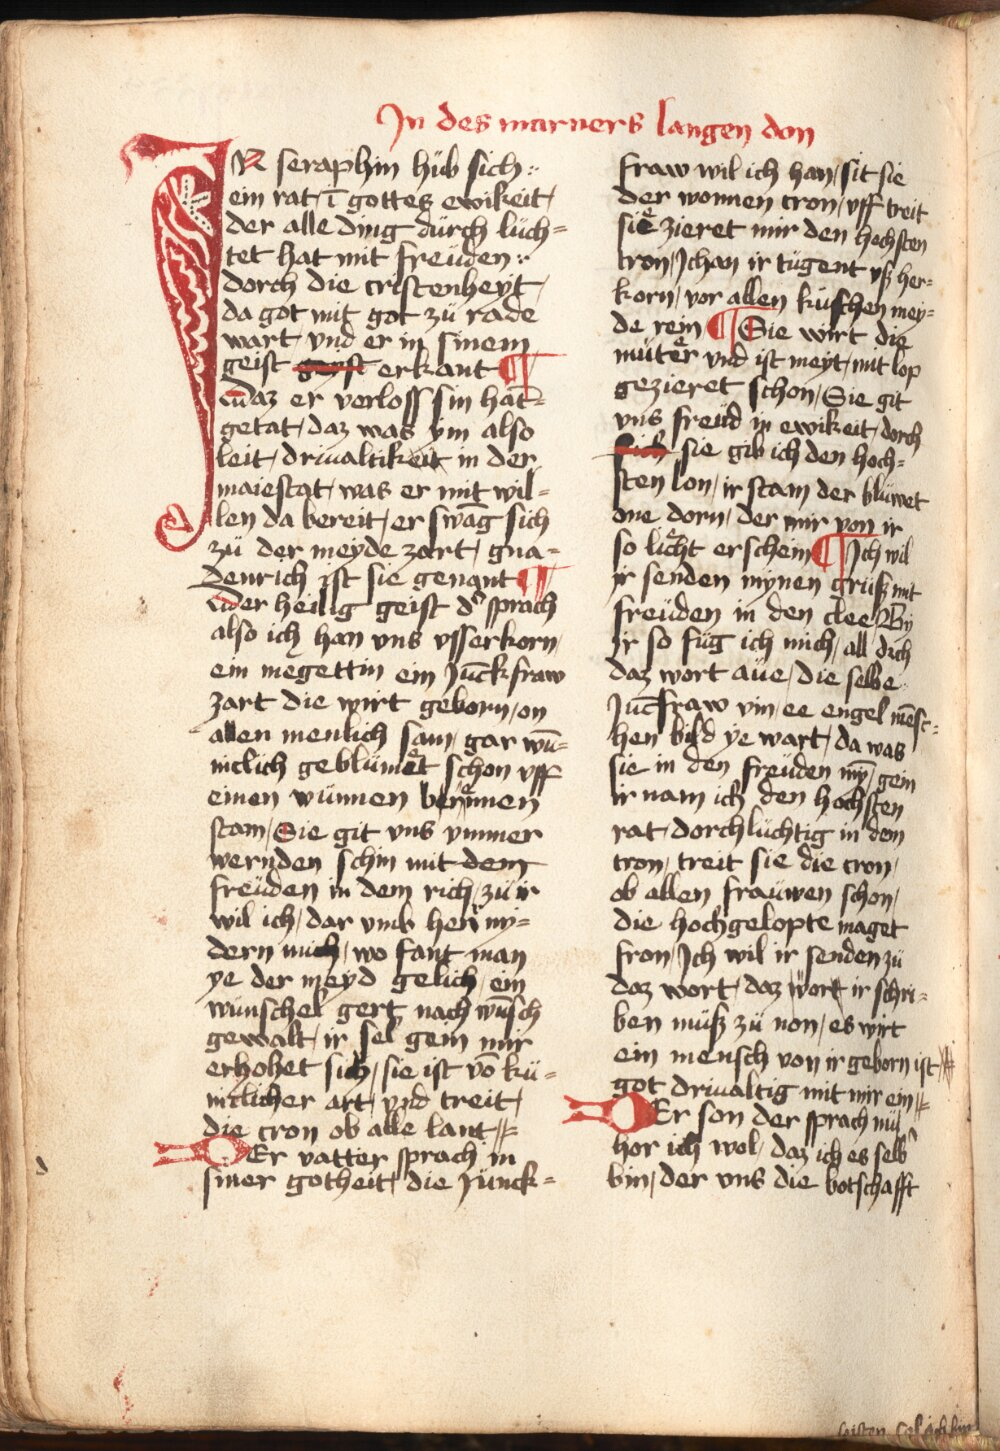 In des marners langen don
IN seraphin hüb sich :
ein rat / ī gottes ewikeit /
der alle ding dürch lüch=
tet hat mit freüden :
dorch die cristenheyt /
da got mit got zü rade
wart / vnd er in sinem
geist geist erkant ¶
waz er verloss sin hāt=
getat / daz was ym also
leit / driualtikeit in der
maiestat / was er mit wil=
len da bereit / er swāg sich
zü der meyde zart / gna=
denrich ist sie genant ¶
der heilig geist d' sprach
also ich han vns vsserkorn /
ein megettin ein Jūckfraw
zart die wirt geborn / on
allen menlich sam / gar wū=
niclich geblümet schon vff
einen wünnen bernnen
stam / Sie git vns ymmer
wernden schin mit dem
freüden in dem rich / zü ir
wil ich / dar vmb her ny=
dern mich / wo fant man
ye der meyd gelich / ein
wünschel gert nach wūsch
gewalt / ir sel gein mir
erhohet sich / sie ist vō kü=
niclicher art / vnd treit /
die cron ob alle lant
Er vatter sprach in
siner gotheit / die Jünck=
fraw wil ich han / sit sie
der wonnen cron / vff treit
sie zieret mir den hechsten
tron / Ich han ir tügent vß her=
korn / vor allen küschen mey=
de rein ¶ Sie wirt die
müter vnd ist meyt / mit lop
gezieret schon / Sie git
vns freüd in ewikeit / dorch
sich sie gib ich den hoch=
sten lon / ir stam der blüwet
one dorn / der mir von ir
so licht erschein ¶ Ich wil
ir senden mynen grüß mit
freüden in den clee / By
ir so füg ich mich / all dīch
daz wort aüe / die selbe
Jūcfraw vin / ee engel mēsc=
hen bild ye wart / da was
sie in den freüden mȳ / gein
ir nam ich den hochsten
rat / dorchlüchtig in dem
tron / treit sie die cron /
ob allen fraüwen schon /
die hochgelopte maget
fron / Ich wil ir senden zü
daz wort / daz wort ir schri=
ben müß zü non / es wirt
ein mensch von ir geborn ist
got driualtig mit mir ein
Er son der sprach nü
hor ich wol / daz ich es selb'
bin / der vns die botschafft